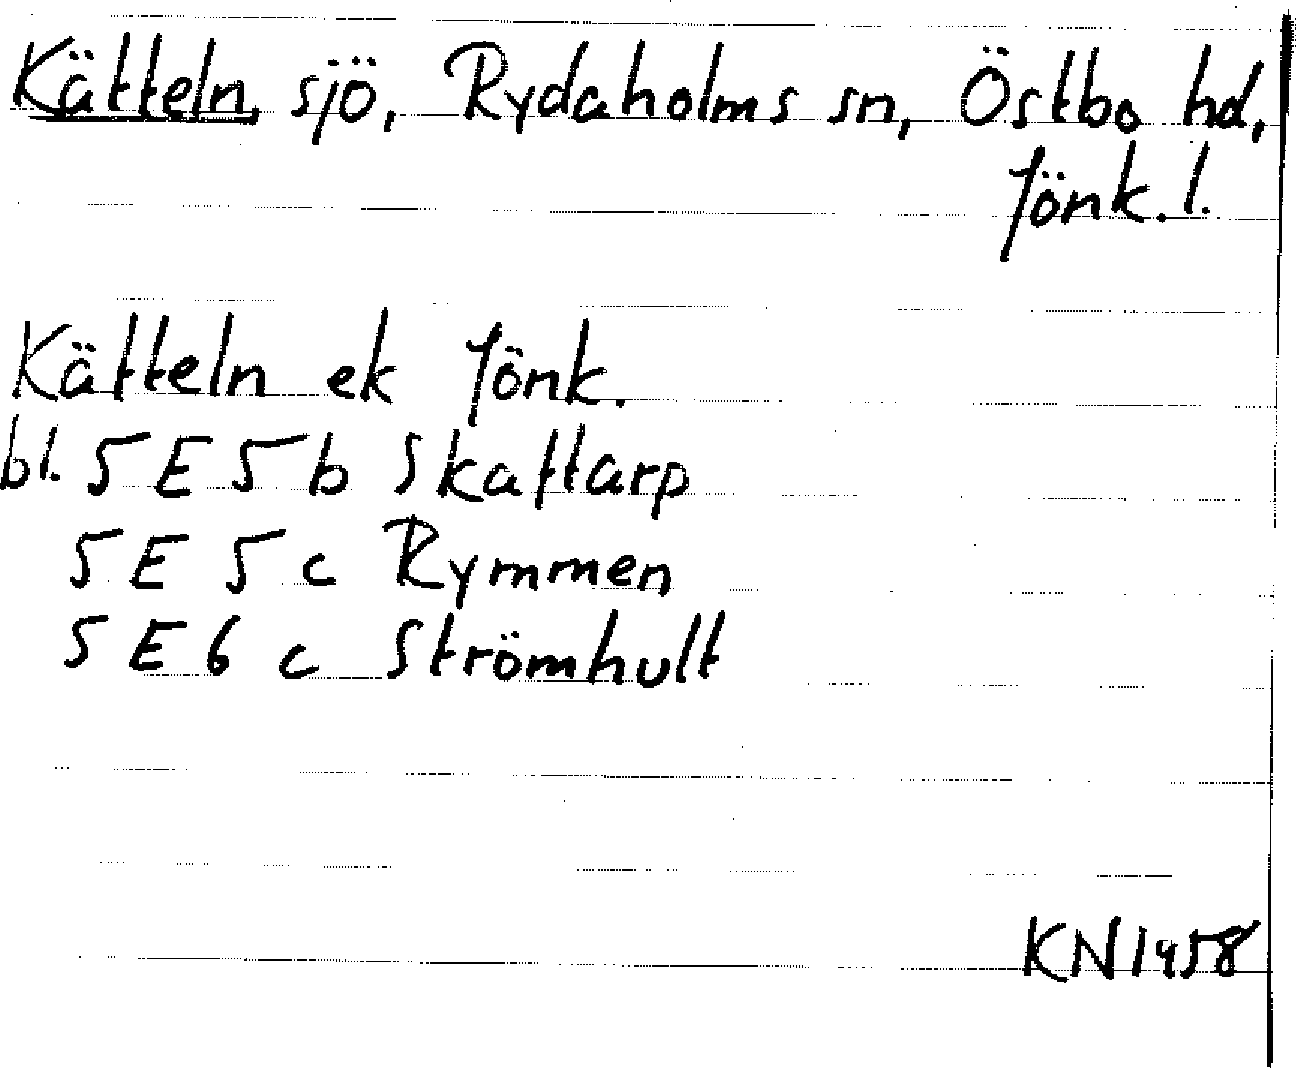 Kätteln, sjö, Rydaholms sn, Östbo hd,
Jönk. l.
Kätteln ek Jönk.
bl. 5 E 5 b Skattarp
5 E 5 c Rymmen
5 E 6 c Strömhult
KN 1958